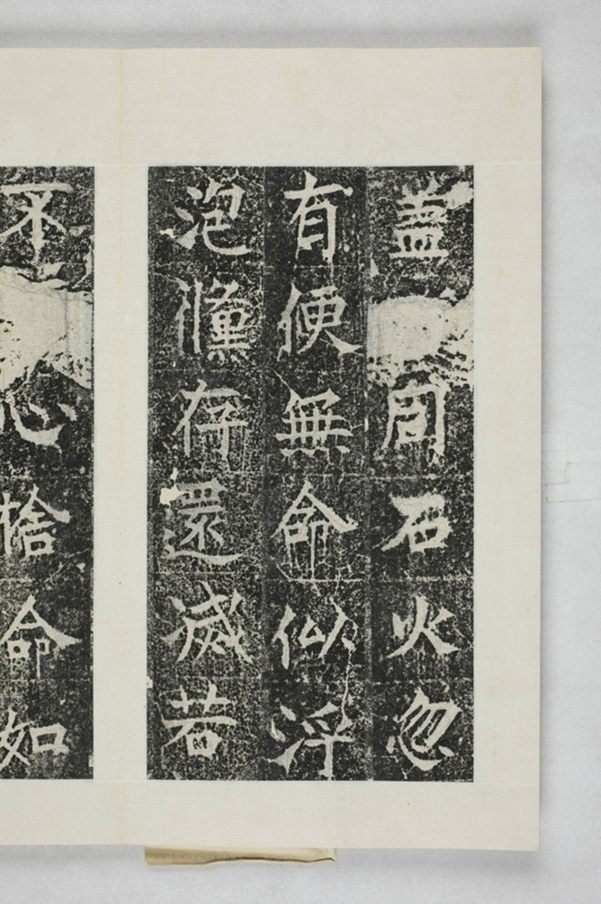 蓋間石火忽
有便無命似浮
泡存還滅若
不心捨命如